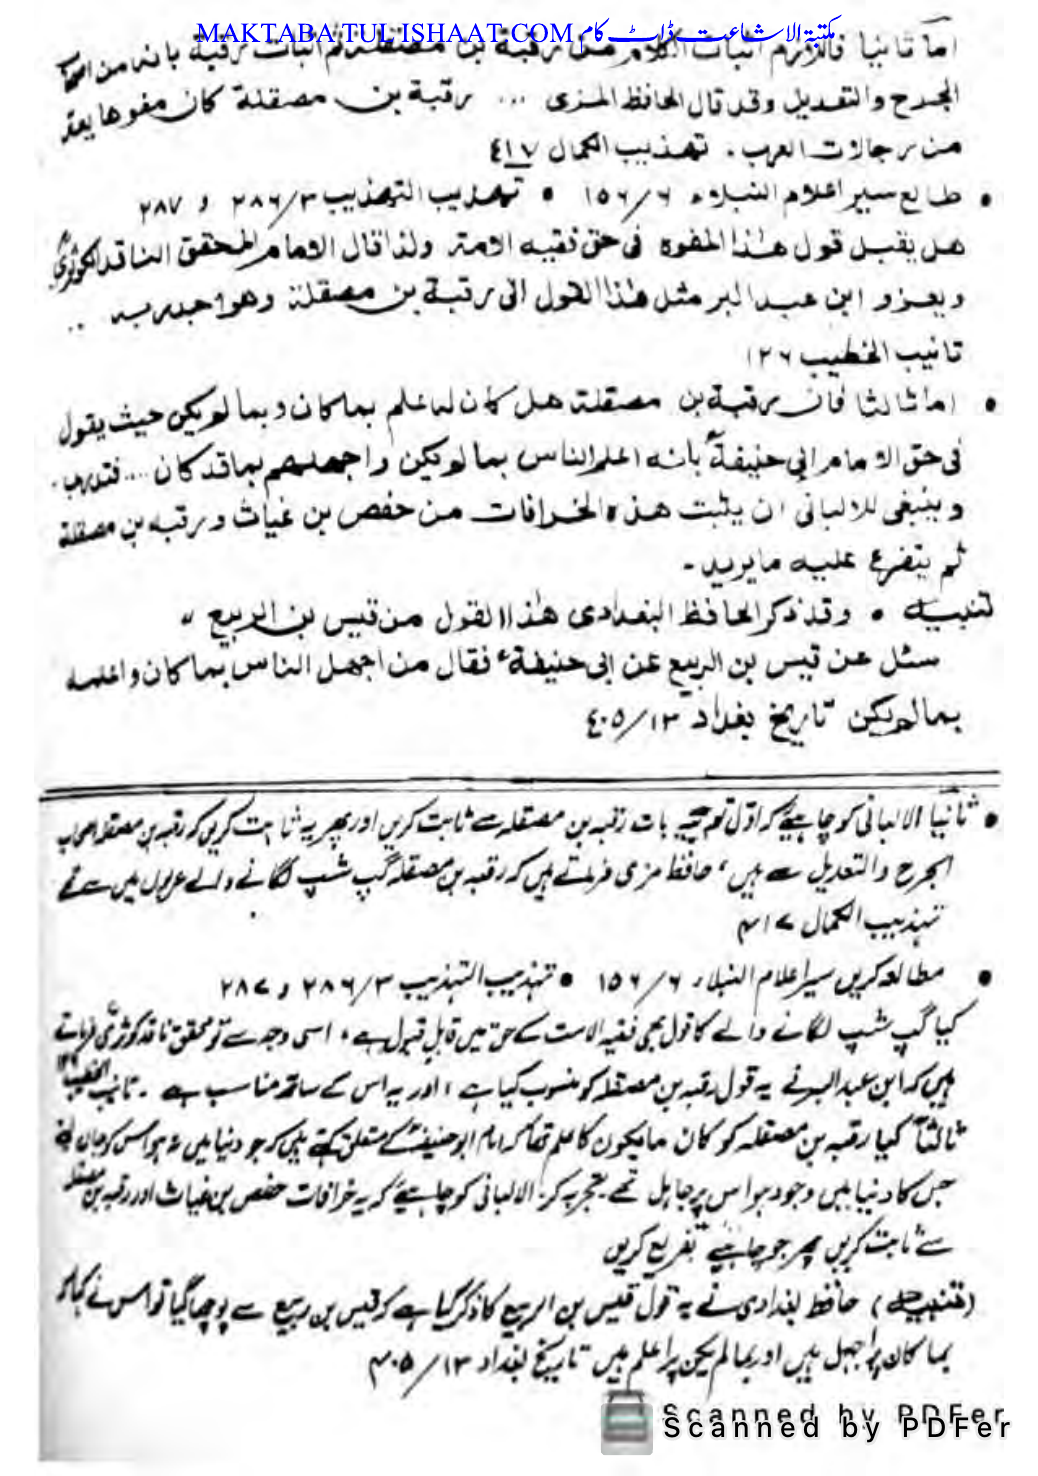 MAKTABA TUL ISHAAT.COM مکتبۃ الاشاعت ڈاٹ کام
اما ثانیا فالازم اثبات الکلام من رقبة بن مصقلة ثم اثبات رقبة بانه من
الجرح والتعدیل وقد قال الحافظ المزی ... رقبة بن مصقلة کان مفوها یعد
من رجالات العرب۔ تهذیب الکمال ٤١٧
• طالع سیر اعلام النبلاء ١٥٦/٦ • تهذیب التهذیب ٢٨٦/٣ و ٢٨٧
هل یقبل قول هذا المفوه فی حق فقیه الامة ولذا قال الامام المحقق الناقد الکوثریؒ
ویعزو ابن عبد البر مثل هذا القول الی رقبة بن مصقلة وهو جدیر به ..
تانیب الخطیب ١٢٦
• اما ثالثا فان رقبة بن مصقلة هل کان له علم بما کان وبما لم یکن حیث یقول
فی حق الامام ابی حنیفةؒ بانه اعلم الناس بما لم یکن واجهلهم بما قد کان ....
وینبغی للالبانی ان یثبت هذه الخرافات من حفص بن غیاث ورقبه بن مصقلة
ثم یتفرع علیه ما یرید۔
تنبیه • وقد ذکر الحافظ البغدادی هذا القول من قیس بن الربیع
سئل عن قیس بن الربیع عن ابی حنیفة فقال من اجهل الناس بما کان واعلمه
بما لم یکن تاریخ بغداد ٤٠٥/١٣
• ثانیاً الالبانی کو چاہیے کہ اوّل تو یہ بات رقبہ بن مصقلہ سے ثابت کریں اور پھر یہ ثابت کریں کہ رقبہ بن مصقلہ اصحاب
الجرح والتعدیل سے ہیں، حافظ مزی فرماتے ہیں کہ رقبہ بن مصقلہ گپ شپ لگانے والے عربوں میں سے تھے
تہذیب الکمال ۴۱۷
• مطالعہ کریں سیر اعلام النبلاء ۱۵۶/۶ • تہذیب التہذیب ۲۸۶/۳ و ۲۸۷
کیا گپ شپ لگانے والے کا قول بھی فقیہ الامت کے حق میں قابل قبول ہے، اسی وجہ سے تو محقق ناقد کوثریؒ فرماتے
ہیں کہ ابن عبد البر نے یہ قول رقبہ بن مصقلہ کو منسوب کیا ہے، اور یہ اس کے ساتھ مناسب ہے۔ تانیب الخطیب ۱۲۶
ثالثاً کیا رقبہ بن مصقلہ کو کان مایکون کا علم تھا کہ امام ابو حنیفہؒ کے متعلق کہتے ہیں کہ جو دنیا میں نہ ہو اس کو جان لیتے
جس کا دنیا میں وجود ہو اس پر جاہل تھے۔ الالبانی کو چاہیے کہ یہ خرافات حفص بن غیاث اور رقبہ بن مصقلہ
سے ثابت کریں پھر جو چاہیے تفریع کریں
(تنبیہ) حافظ بغدادی نے یہ قول قیس بن الربیع کا ذکر کیا ہے کہ قیس بن ربیع سے پوچھا گیا تو اس نے کہا کہ
بما کان پر اجہل ہیں اور بما لم یکن پر اعلم ہیں تاریخ بغداد ۴۰۵/۱۳
Scanned by PDFer